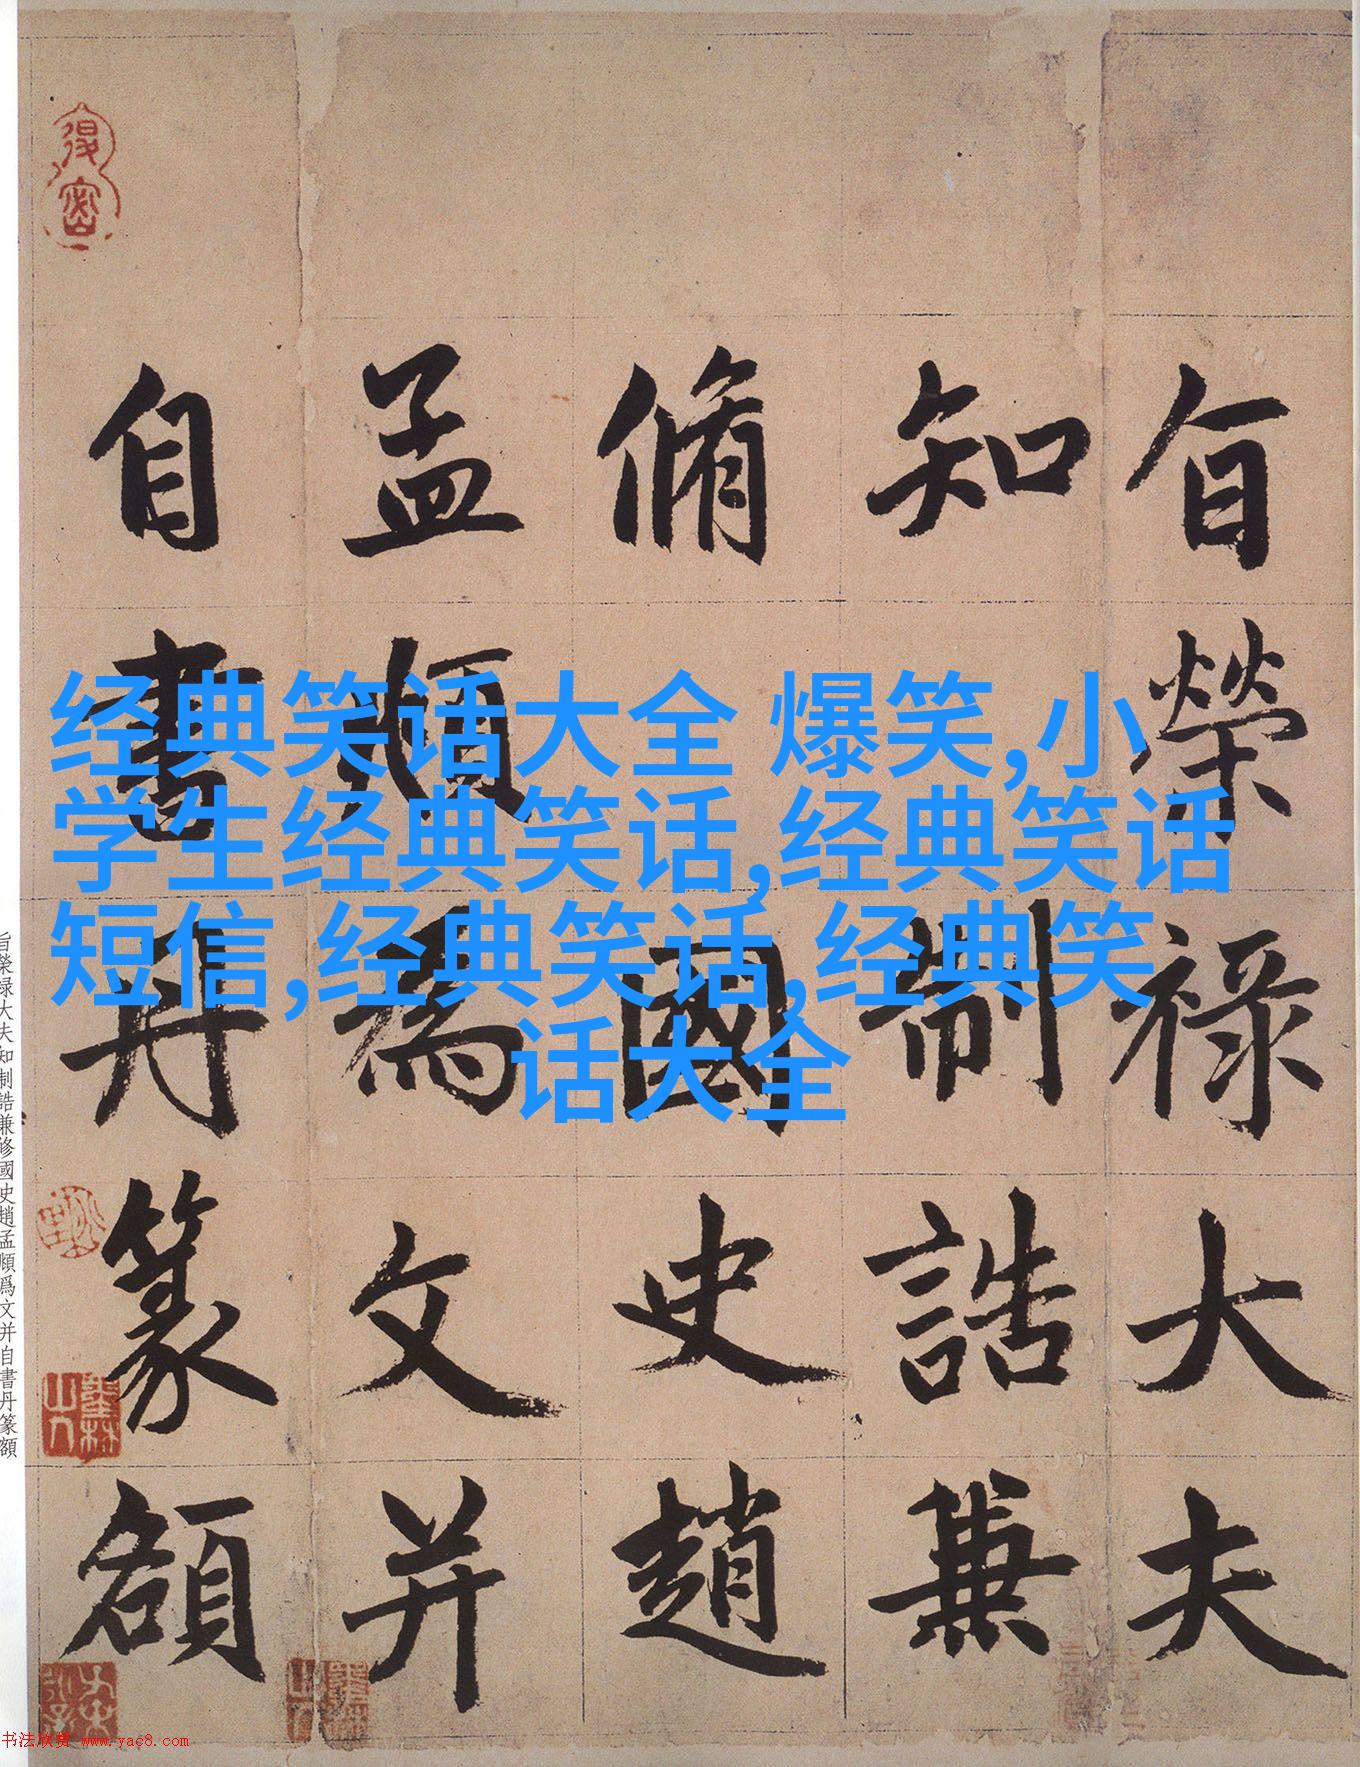 旨榮祿大夫
知制誥兼
脩國史趙
孟頫為文并
自書丹篆額
经典笑话大全 爆笑,小
学生经典笑话,经典笑话
短信,经典笑话,经典笑
话大全
旨榮禄大夫知制誥兼修國史趙孟頫爲文并自書丹篆額
书法欣赏 www.yac8.com